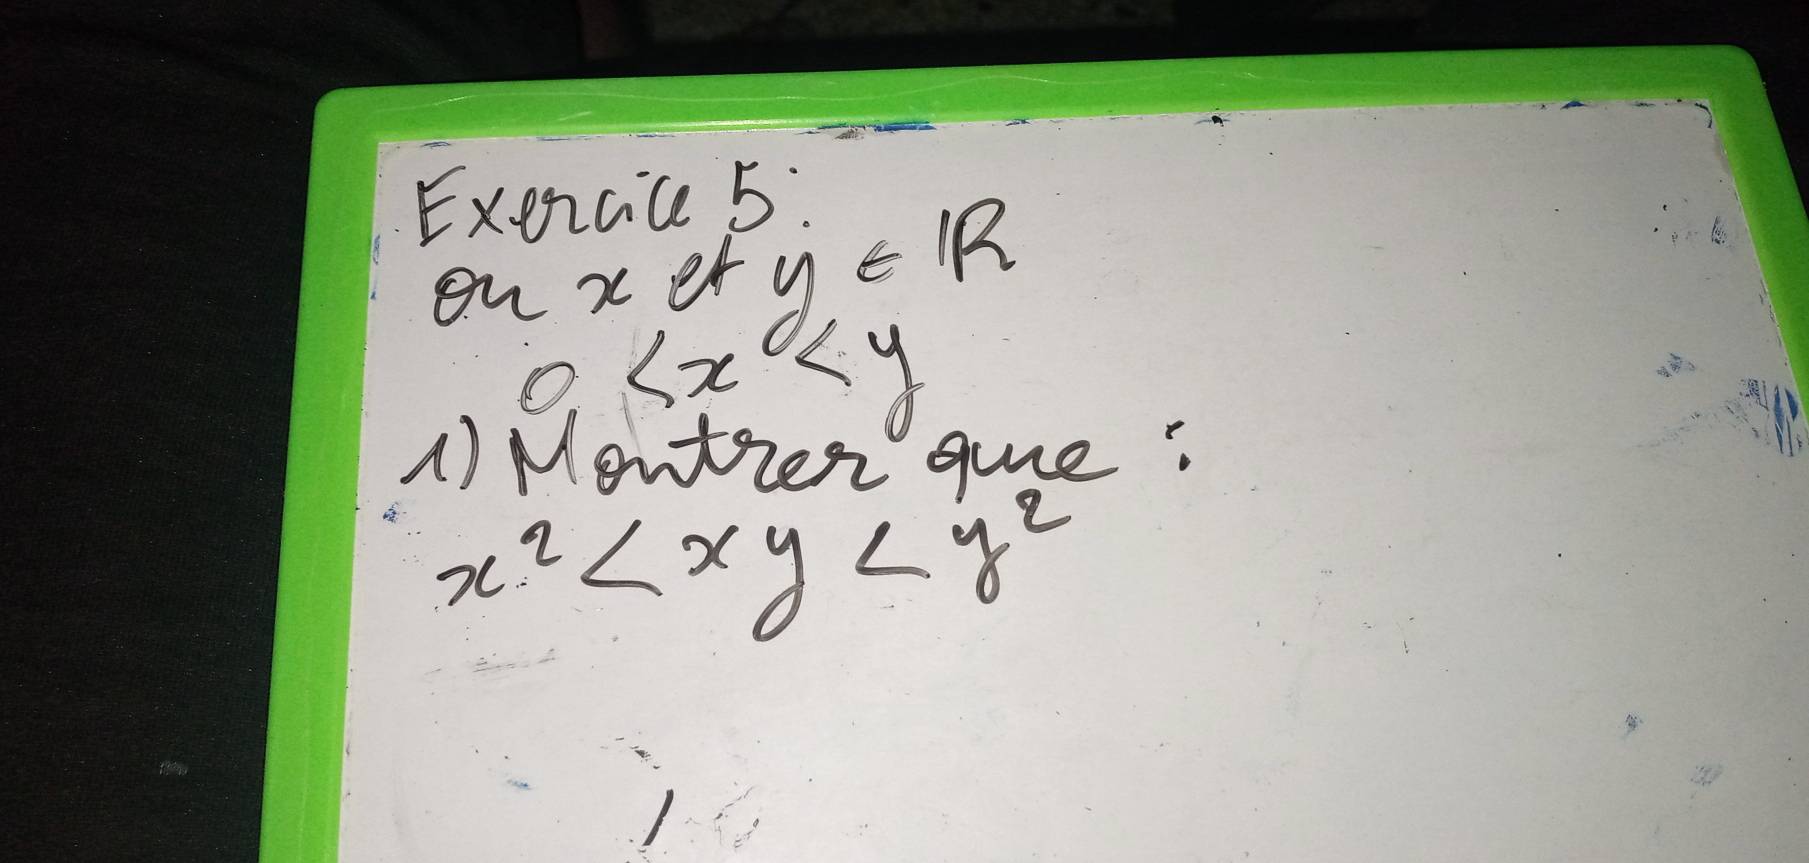 Exercice 5:
on x et y ∈ IR
0 < x < y
1) Montrer que :
x² < xy < y²